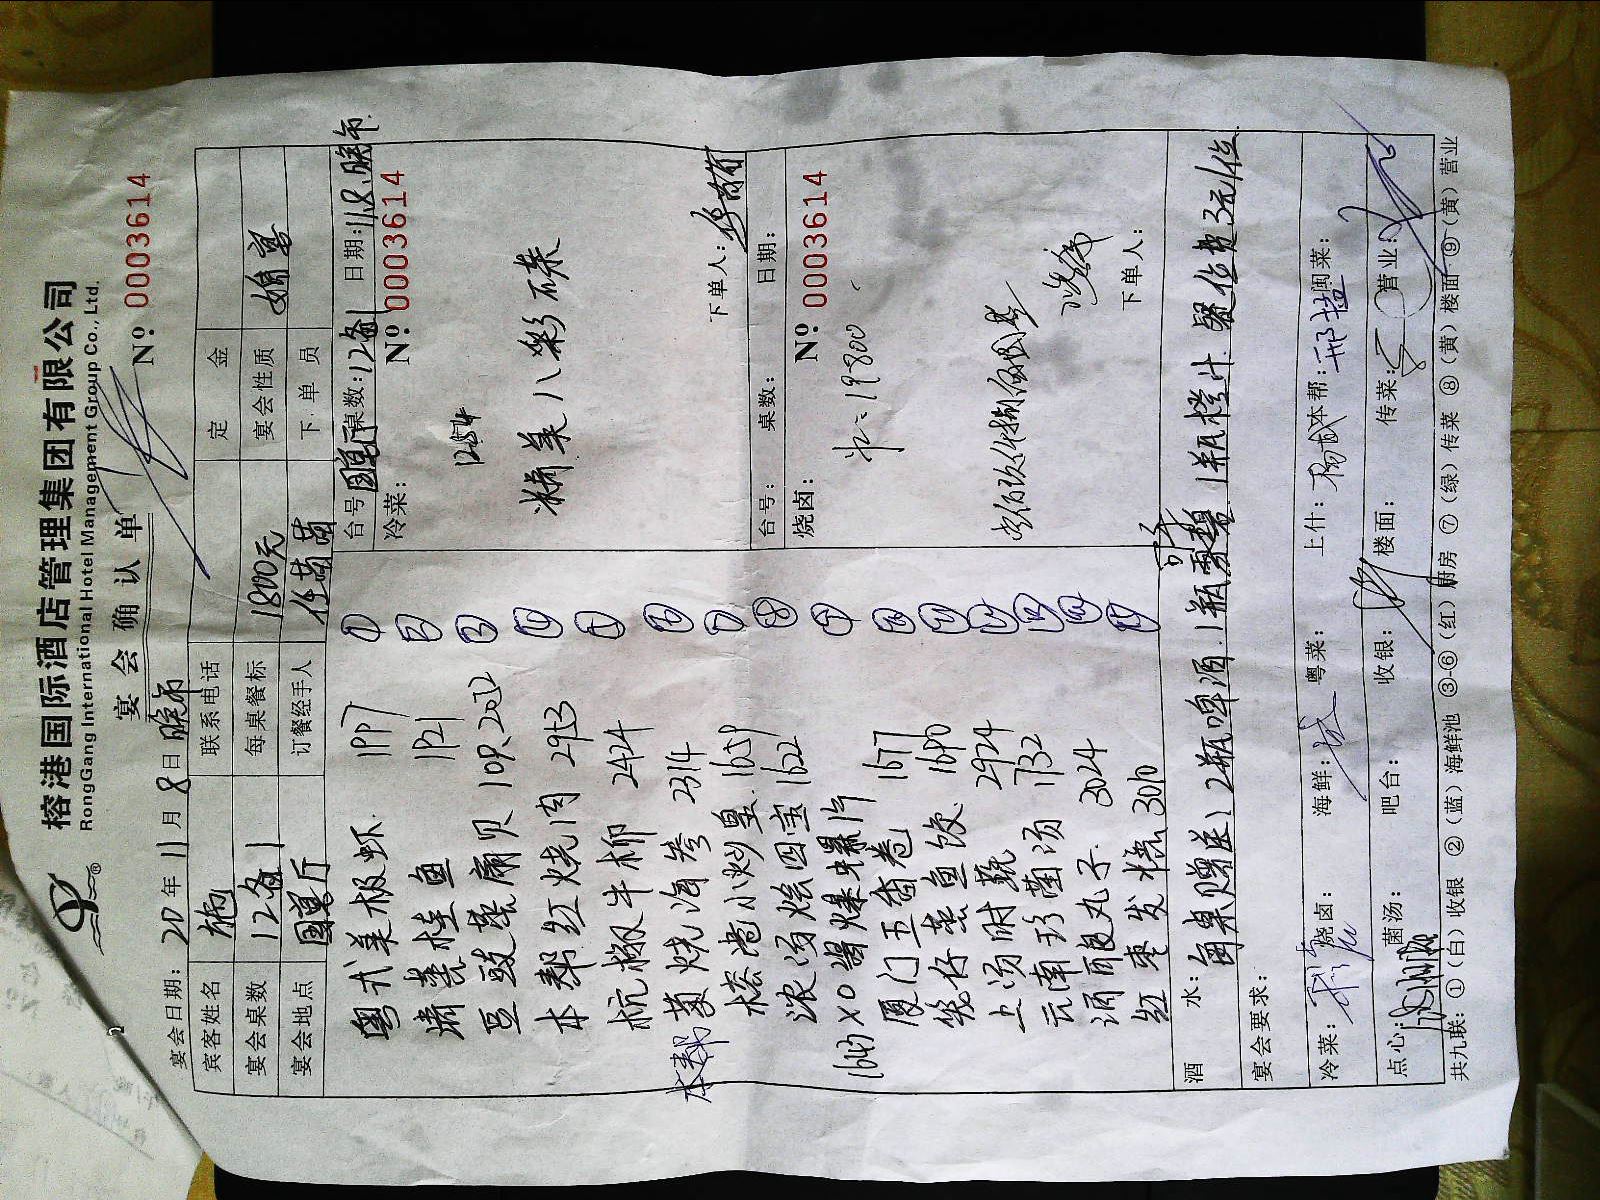 榕港国际酒店管理集团有限公司
RongGang International Hotel Management Group Co., Ltd.
宴会确认单
Nº 0003614
宴会日期: 20 年 11 月 8 日 晚市
宾客姓名 施 联系电话 定金
宴会桌数 12备1 每桌餐标 1800元 宴会性质 婚宴
宴会地点 國宴厅 订餐经手人 任萌萌 下单员
粤式美极虾 1997 ①
清蒸桂鱼 1921 ②
豆豉蒸扇贝 10只 2022 ③
本帮红烧肉 2953 ④
杭椒牛柳 2424 ⑤
本帮 菌烧海参 2314 ⑥
榕港小炒皇 1659 ⑦
浓汤烩四宝 1622 ⑧
1643 XO酱爆螺片 ⑨
厦门五香卷 1677 ⑩
煲仔蒸鱼饺 1690 ⑪
上汤时蔬 2924 ⑫
云南珍菌汤 1732 ⑬
酒酿丸子 3024 ⑭
红枣发糕 3010 ⑮
台号 國宴厅 桌数: 12备1 日期: 11.8.晚市
冷菜: Nº 0003614
1254
精美八彩碟
下单人:
台号: 桌数: 日期:
烧卤: Nº 0003614
19800
下单人:
酒水: 每桌赠送: 2瓶啤酒.1瓶雪碧 1瓶橙汁 餐位费3元/位
宴会要求:
冷菜: 烧卤: 海鲜: 粤菜: 上什: 本帮: 闽菜:
点心: 菌汤: 吧台: 收银: 楼面: 传菜: 营业:
共九联: ①(白)收银 ②(蓝)海鲜池 ③-⑥(红)厨房 ⑦(绿)传菜 ⑧(黄)楼面 ⑨(黄)营业